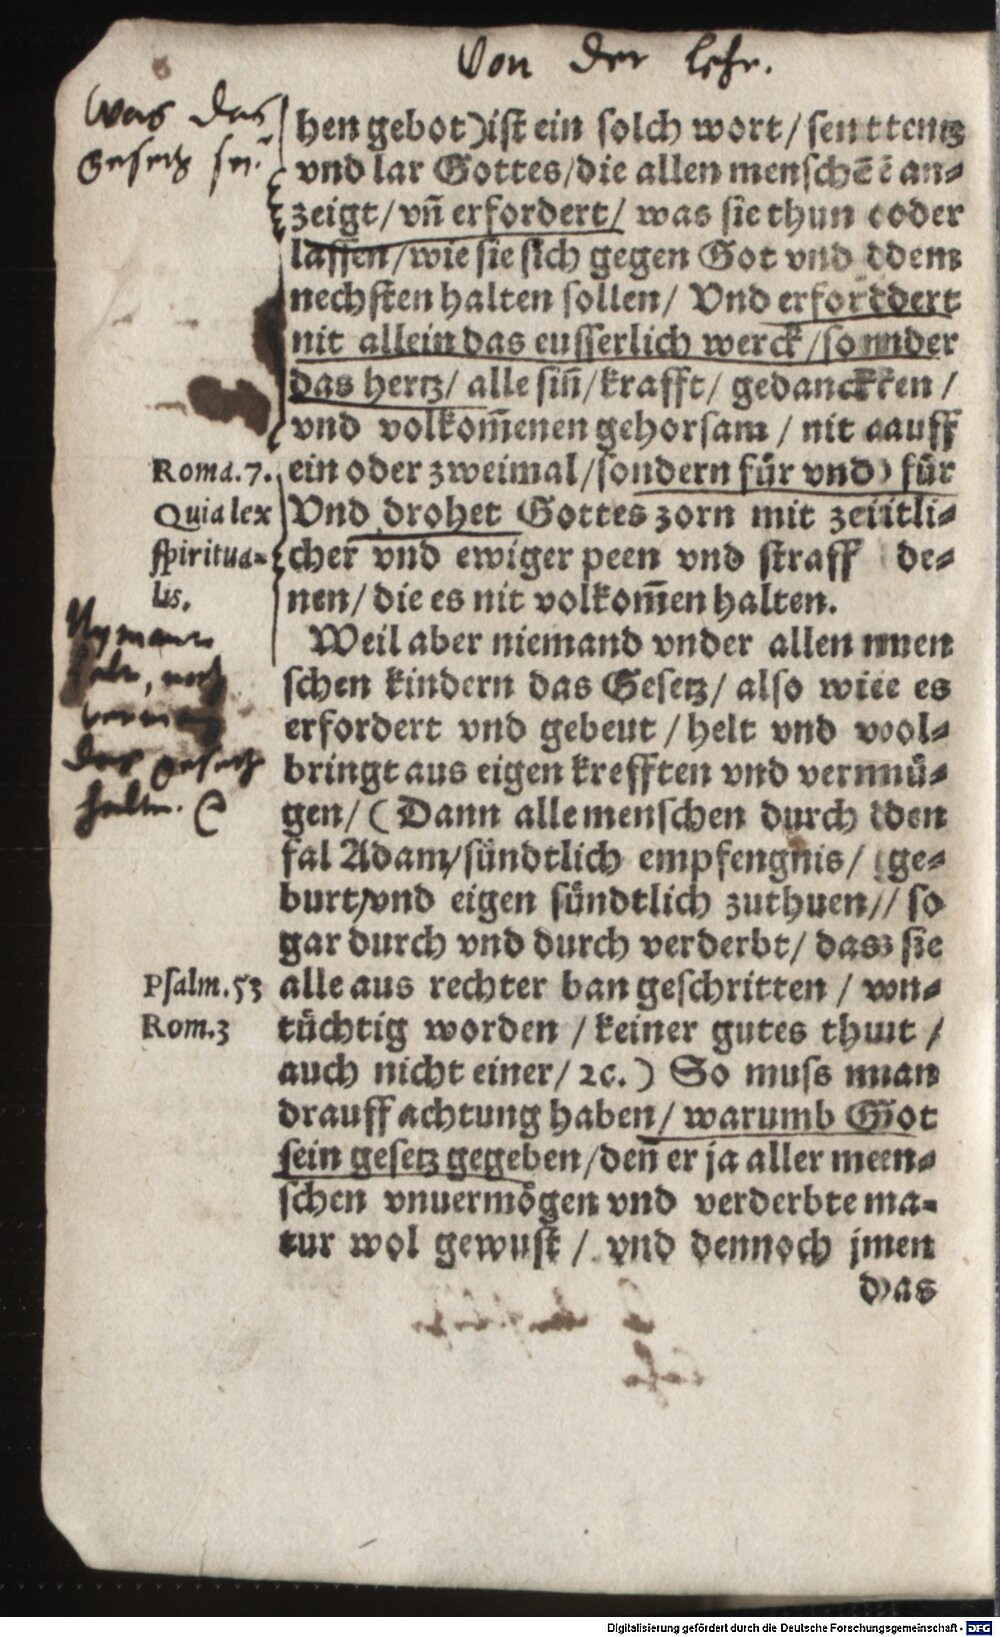 Von der lehr.
Was das
Gesetz sei.
hen gebot) ist ein solch wort / senttentz
vnd lar Gottes / die allen menschē an-
zeigt / vñ erfordert / was sie thun oder
lassen / wie sie sich gegen Got vnd dem
nechsten halten sollen / Vnd erfordert
nit allein das eusserlich werck / sonder
das hertz / alle siñ / krafft / gedancken /
vnd volkom̃enen gehorsam / nit auff
ein oder zweimal / sondern für vnd für
Vnd drohet Gottes zorn mit zeitli-
cher vnd ewiger peen vnd straff de-
nen / die es nit volkom̃en halten.
Roma. 7.
Quia lex
spiritua-
lis.
Weil aber niemand vnder allen men
schen kindern das Gesetz / also wie es
erfordert vnd gebeut / helt vnd vol-
bringt aus eigen krefften vnd vermü-
gen / (Dann alle menschen durch den
fal Adam / sündtlich empfengnis / ge-
burt / vnd eigen sündtlich zuthuen / so
gar durch vnd durch verderbt / das sie
alle aus rechter ban geschritten / vn-
tüchtig worden / keiner gutes thut /
auch nicht einer / ꝛc.) So muss man
drauff achtung haben / warumb Got
sein gesetz gegeben / den̄ er ja aller men-
schen vnuermögen vnd verderbte na-
tur wol gewust / vnd dennoch jmen
das
Nyman
das gesetz
halten.
Psalm. 53
Rom. 3
Digitalisierung gefördert durch die Deutsche Forschungsgemeinschaft - DFG